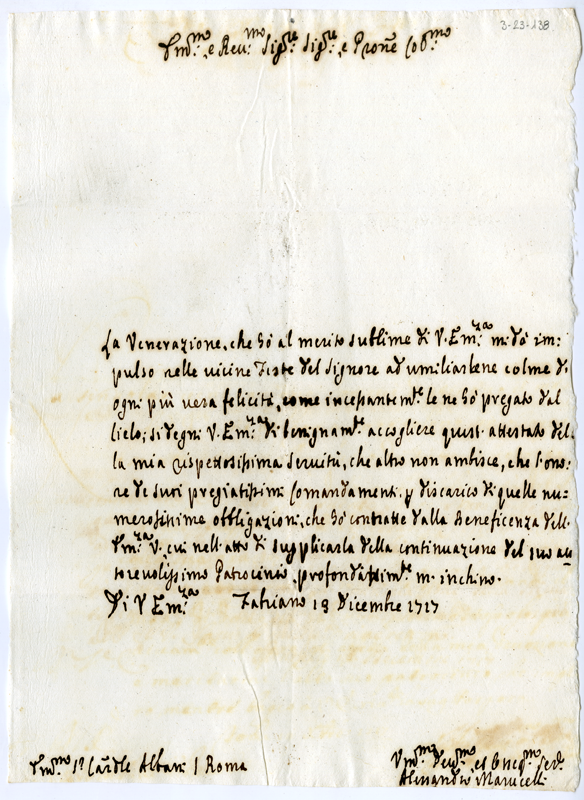 3-23-138
Em.mo, e Reu.mo Sig.re Sig.re, e Prone Col.mo
La Venerazione, che hò al merito sublime di V. Em.za mi dà im:
pulso nelle uicine Feste del Signore ad umiliarlene colme d'
ogni più uera felicità, come incessantem.te le ne hò pregato dal
Cielo; si degni V. Em.za di benignam.te accogliere quest'attestato del:
la mia rispettosissima seruitù, che altro non ambisce, che l'ono:
re de suoi pregiatissimi Comandamenti p discarico di quelle nu:
merosissime obbligazioni, che hò contratte dalla Beneficenza dell'
Em.za V., cui nell'atto di supplicarla della continuazione del suo au
toreuolissimo Patrocinio, profondissim.te m'inchino.
Di V Em.za Fabriano 13 Dicembre 1717
Em.mo Sig. Cardle Albani / Roma
Vm.mo Deu.mo et Obseq.mo Ser.
Alessandro Marucelli